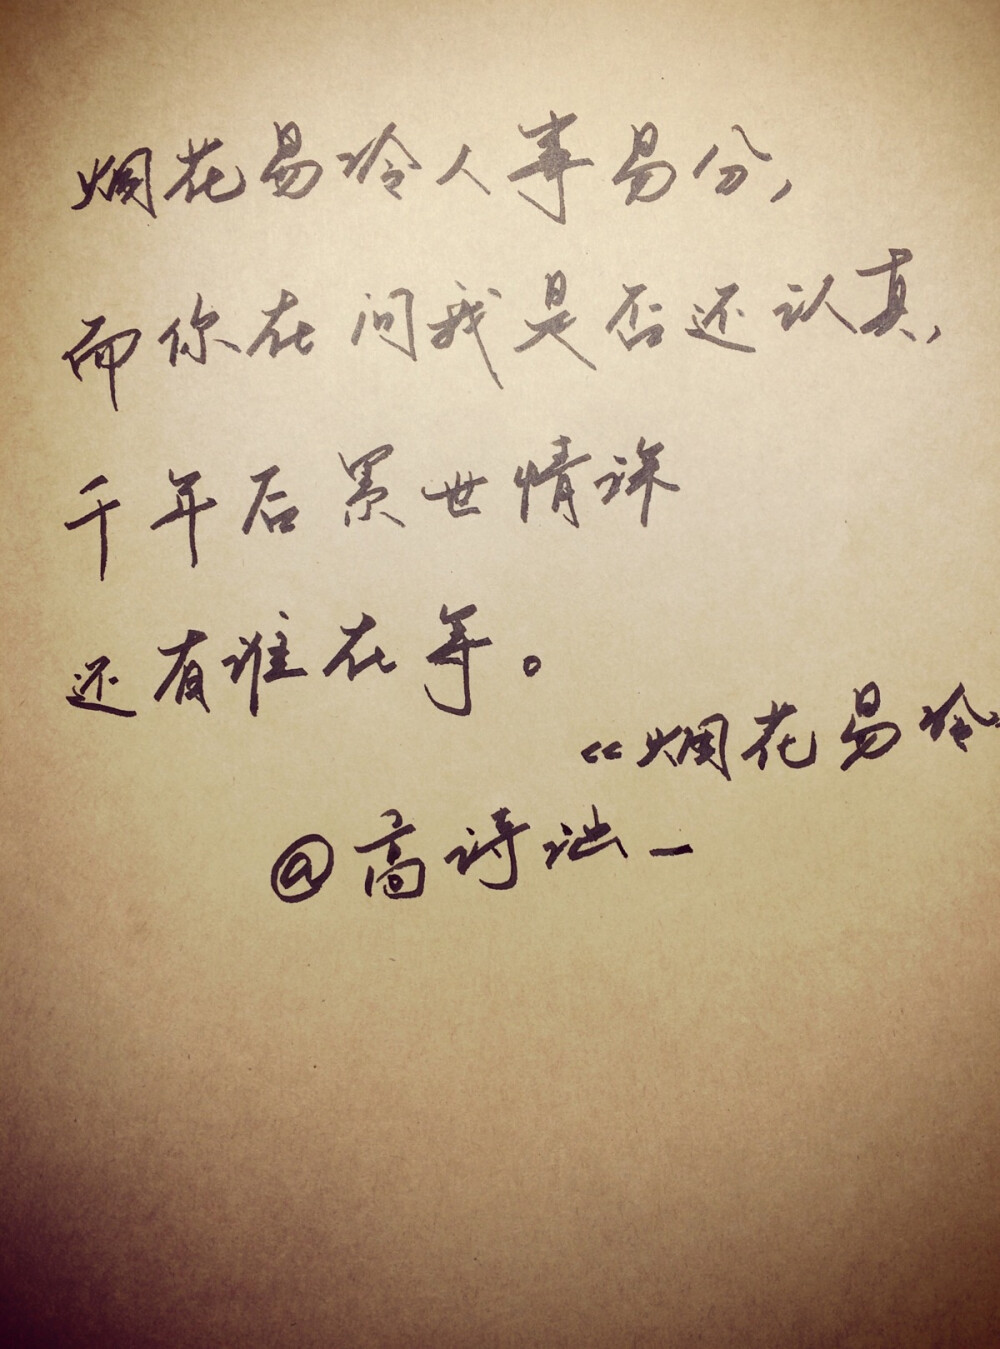 烟花易冷人事易分，
而你在问我是否还认真，
千年后累世情深
还有谁在等。
《烟花易冷
@高诗